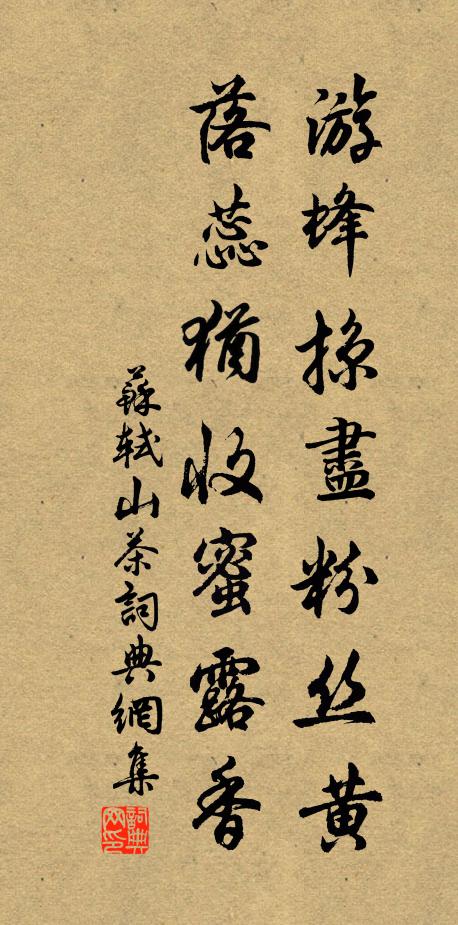 游蜂掠盡粉丝黄
落蕊猶收蜜露香
蘇軾山茶詞典網集
詞典網印